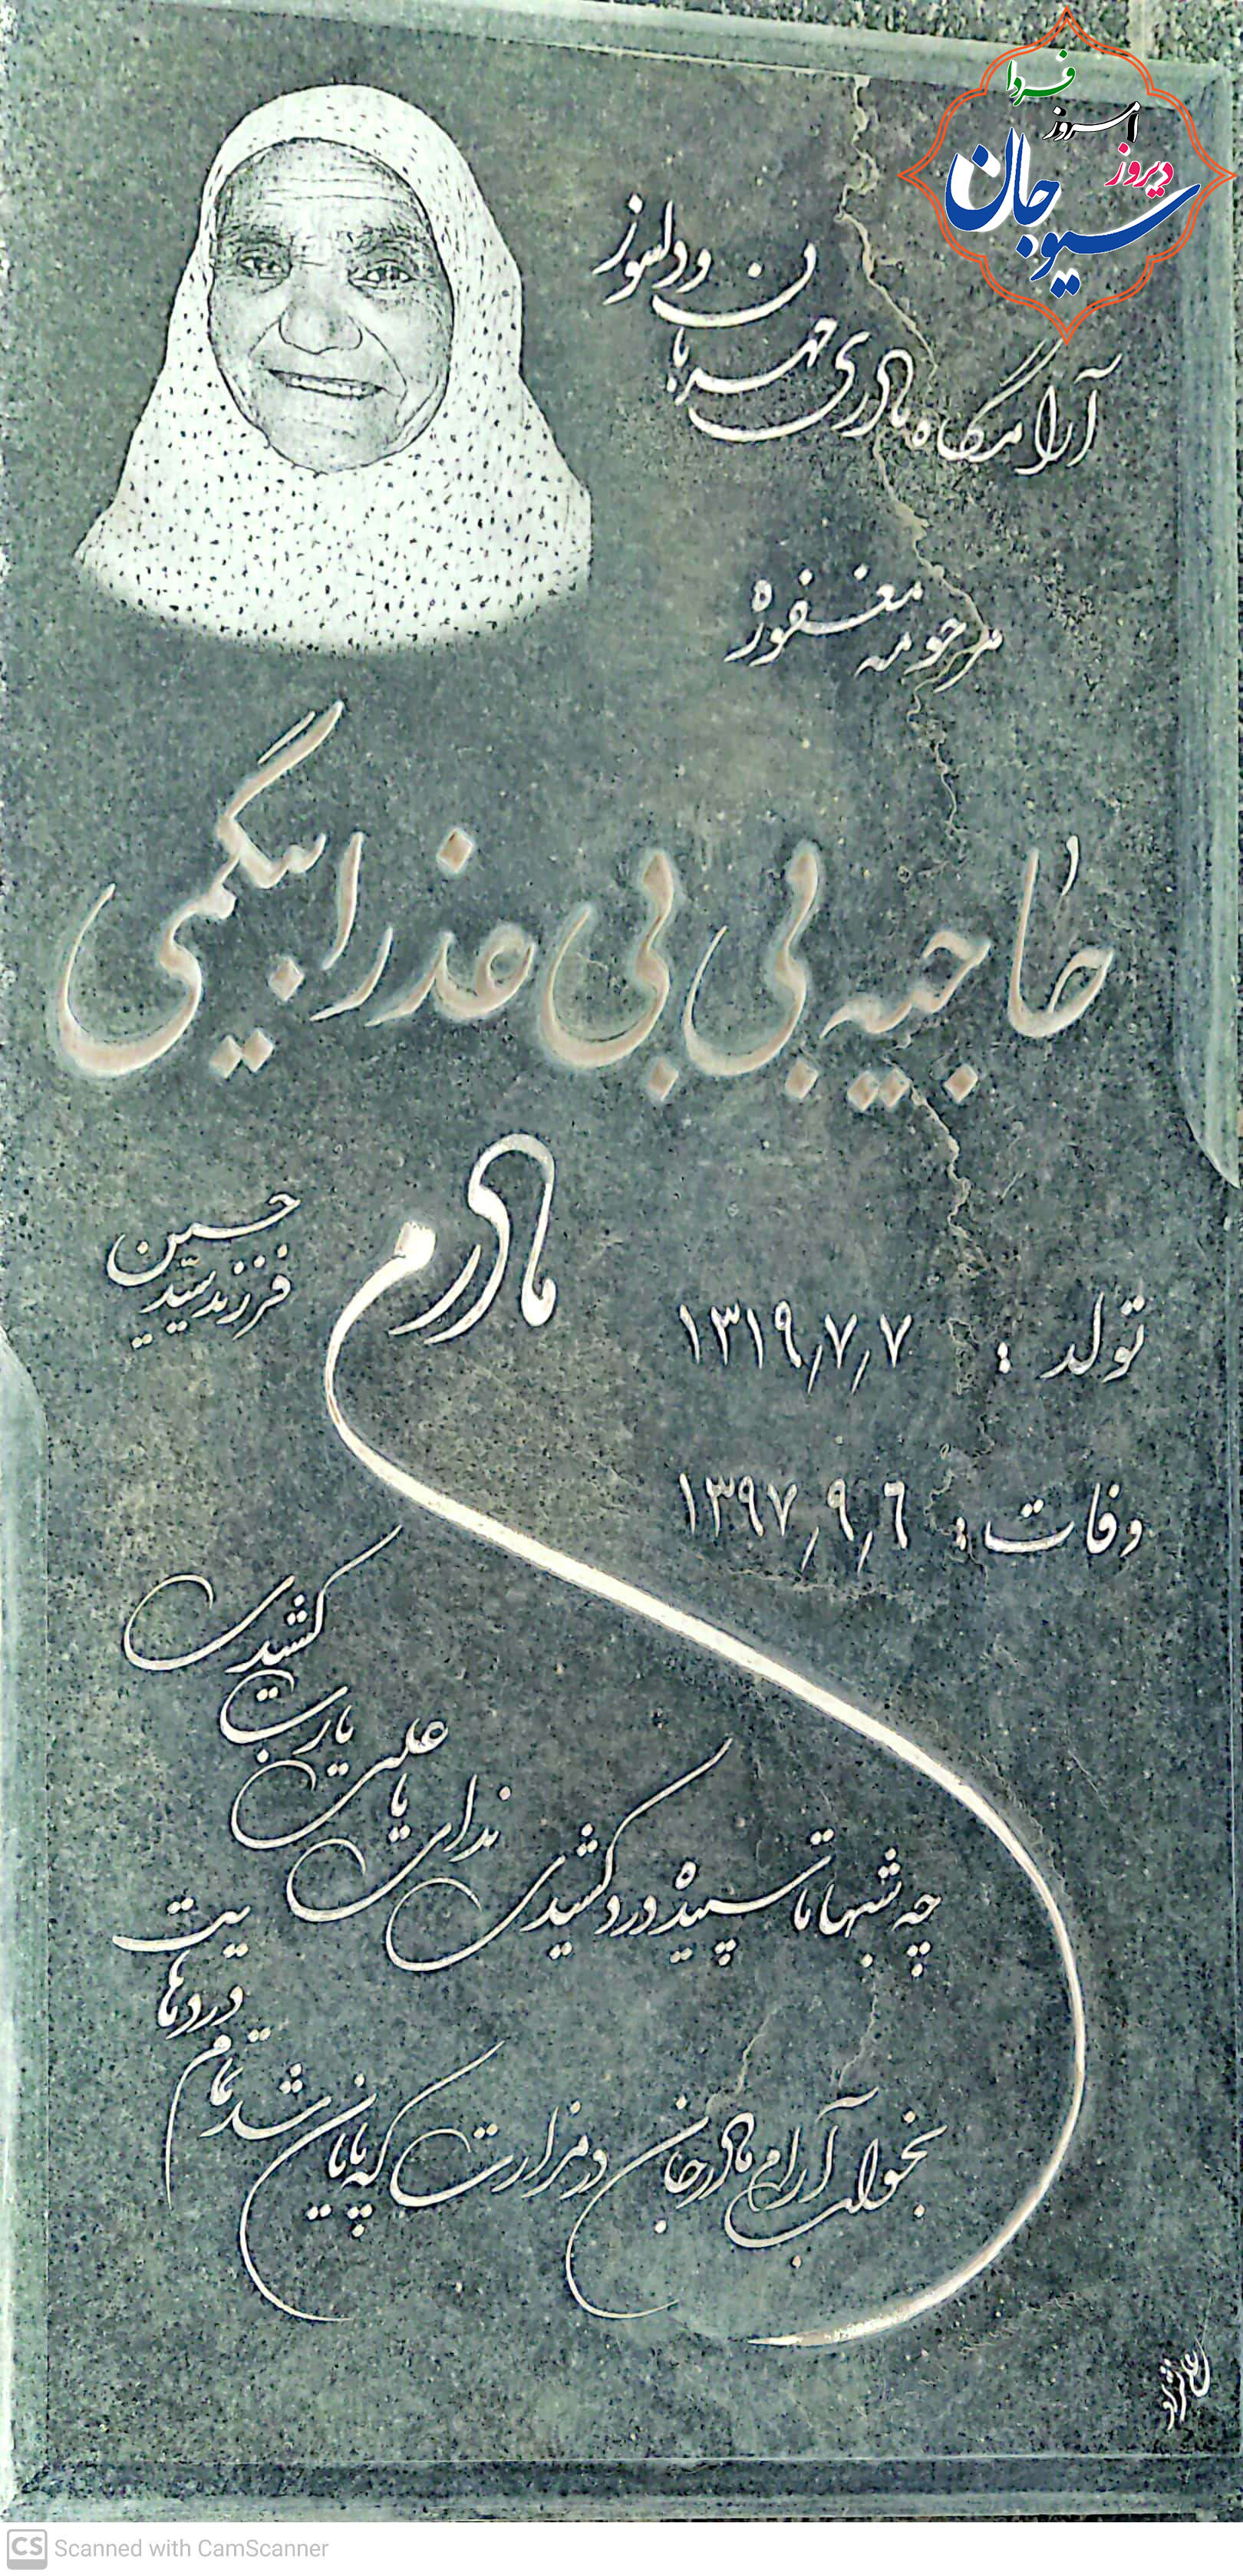 فردا
امروز
دیروز
سیوجان
آرامگاه مادری مهربان و دلسوز
مرحومه مغفوره
حاجیه بی بی عذرا بیگمی
فرزند سید حسین
مادرم
تولد : ۱۳۱۹/۷/۷
وفات : ۱۳۹۷/۹/٦
چه شبها تا سپیده درد کشیدی
ندای یا علی یا رب کشیدی
بخواب آرام مادر جان در مزارت
که پایان شد تمام دردهایت
CS Scanned with CamScanner